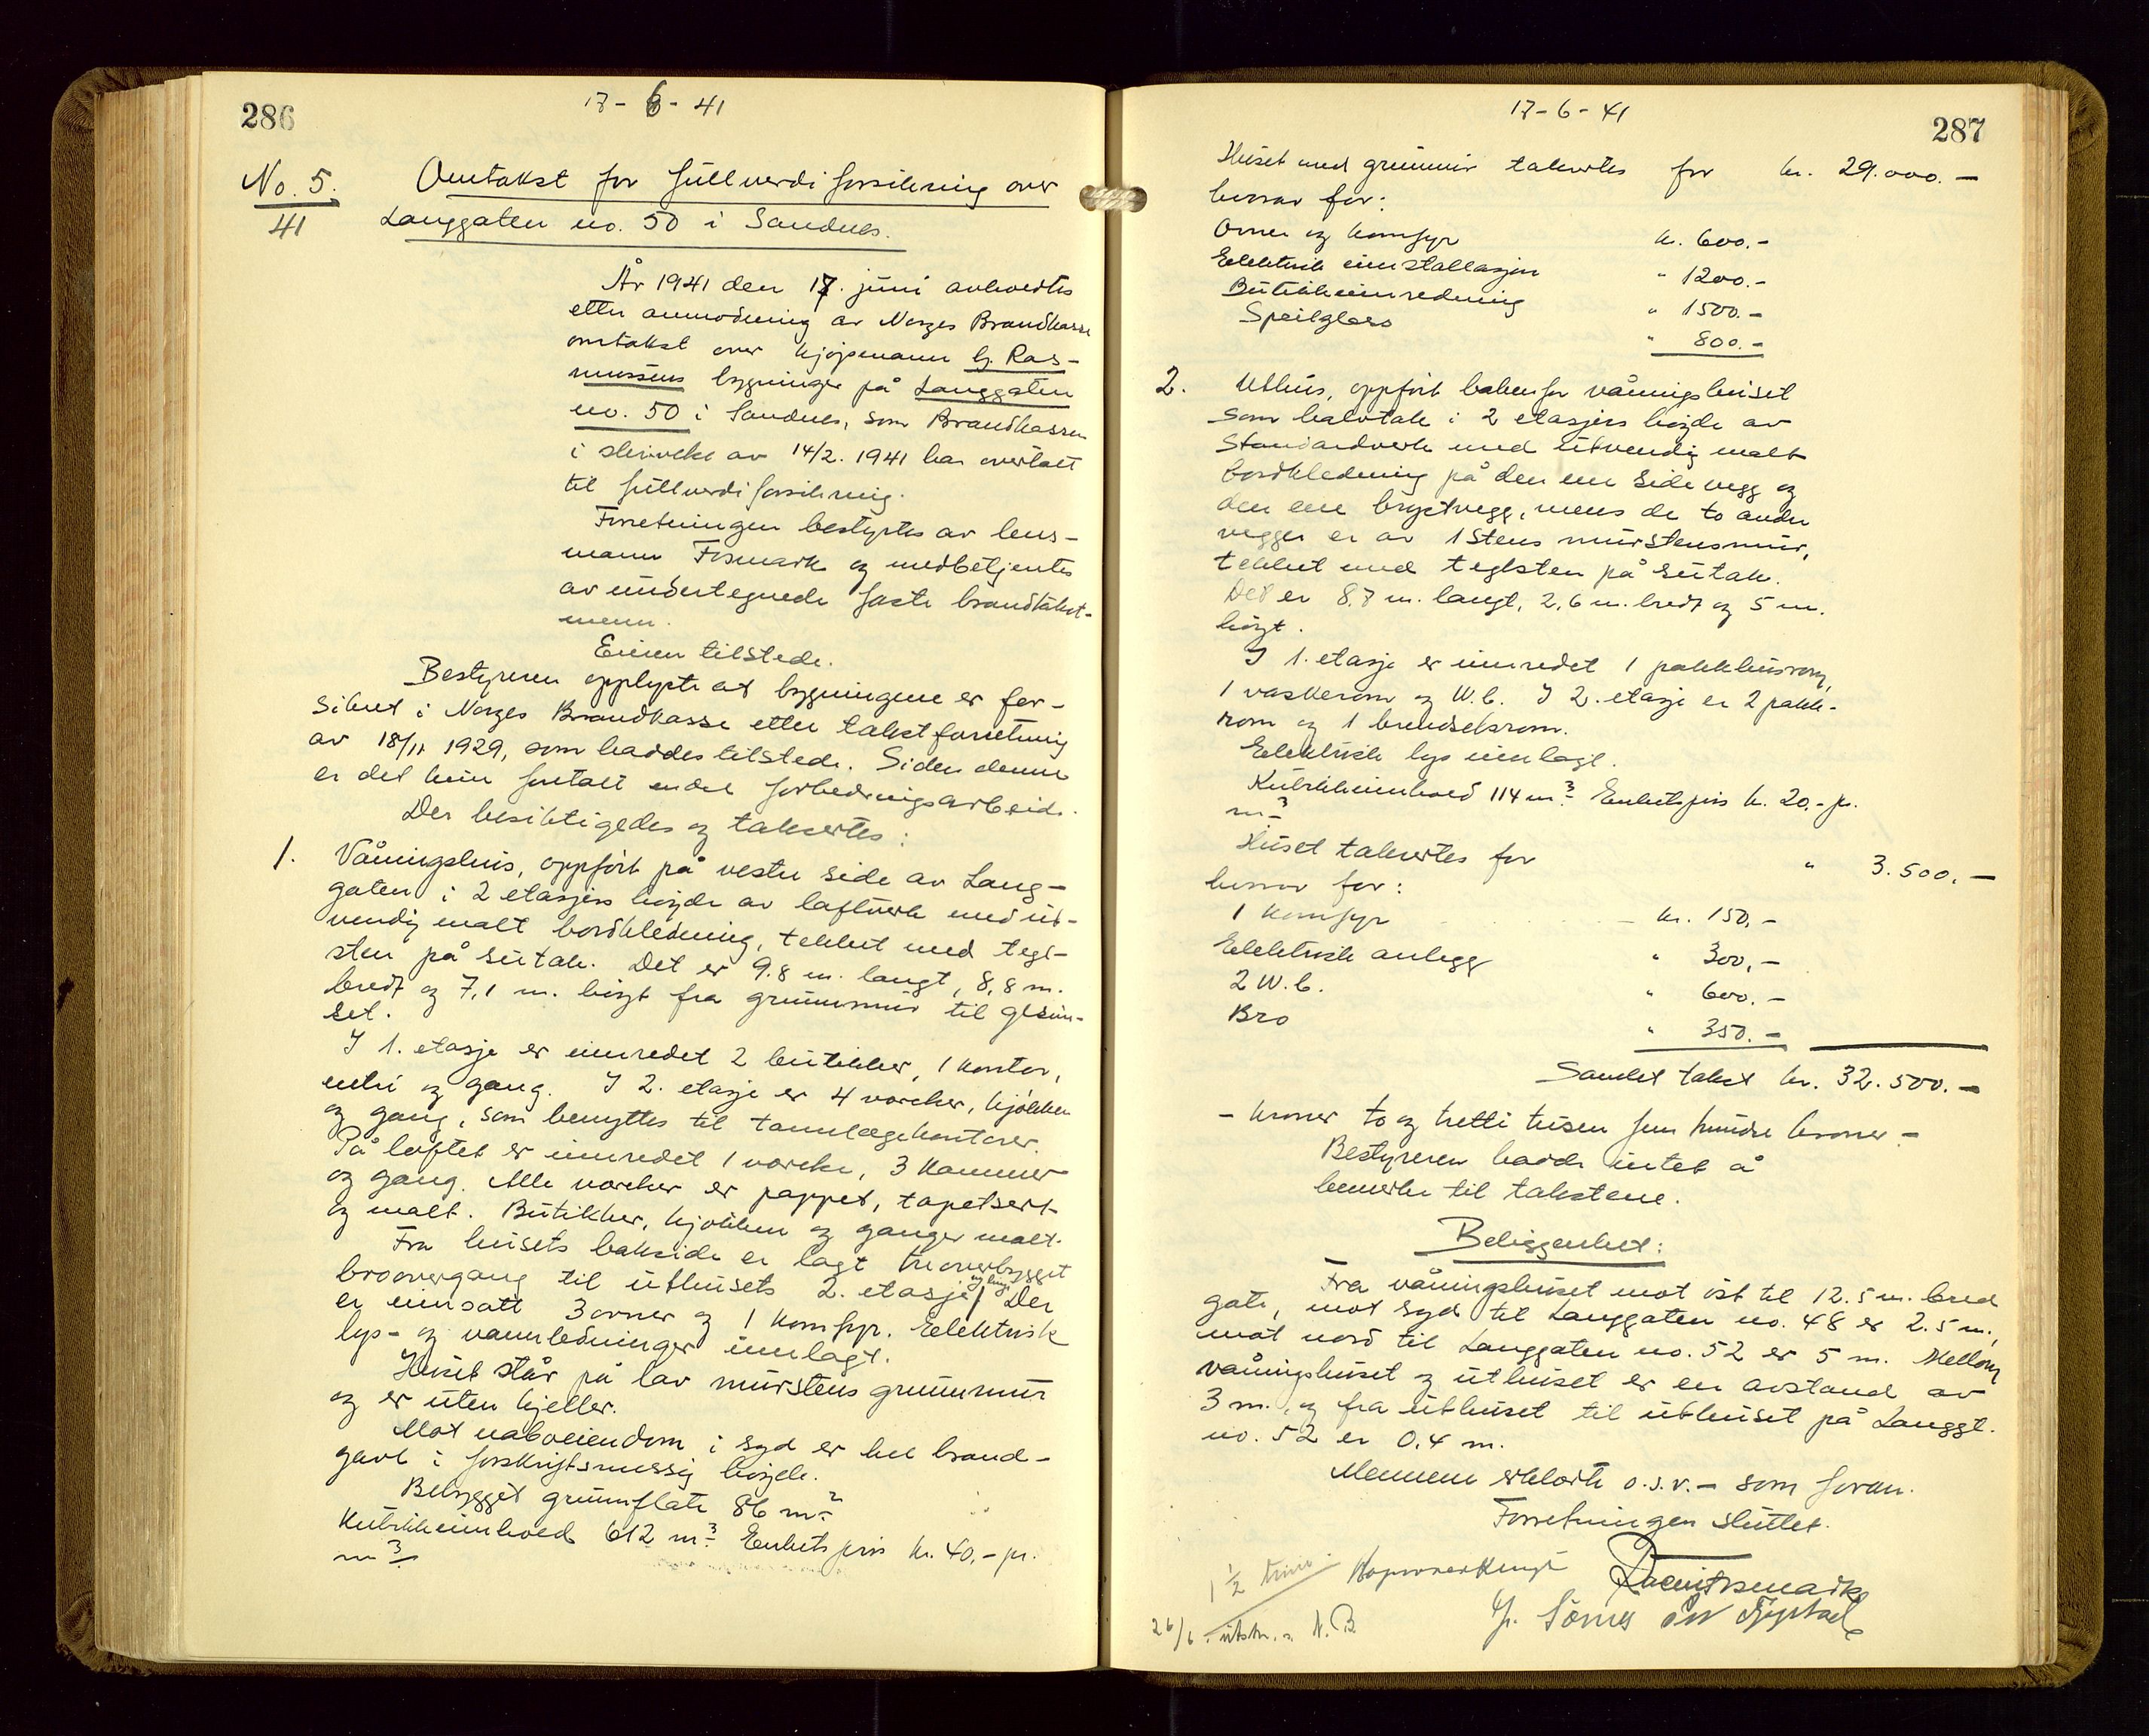 286
17-6-41
No. 5.
41
Omtakst for fullverdiforsikring over
Langgaten no. 50 i Sandnes.
År 1941 den 17. juni avholdtes
etter anmodning av Norges Brandkasse
omtakst over kjøpmann G. Ras-
mussens bygninger på Langgaten
no. 50 i Sandnes, som Brandkassen
i skrivelse av 14/2. 1941 har overtatt
til fullverdiforsikring.
Forretningen bestyrtes av lens-
mann Fosmark og medbetjentes
av undertegnede faste brandtakst-
menn.
Eieren tilstede.
Bestyreren opplyste at bygningene er for-
sikret i Norges Brandkasse etter takstforretning
av 18/11 1929, som haddes tilstede. Siden denne
er det kun foretatt endel forbedringsarbeide.
Der besiktigedes og taksertes:
1. Våningshus, oppført på vestre side av Lang-
gaten i 2 etasjers høyde av laftverk med ut-
vendig malt bordkledning, tekket med tegl-
sten på sutak. Det er 9.8 m. langt, 8,8 m.
bredt og 7,1 m. høyt fra grunnmur til gesim-
set.
I 1. etasje er innredet 2 butikker, 1 kontor,
entre og gang. I 2. etasje er 4 værelser, kjøkken
og gang, som benyttes til tannlægekontorer.
På loftet er innredet 1 værelse, 3 kammer
og gang. Alle værelser er pappet, tapetsert
og malt. Butikker, kjøkken og ganger malt.
Fra husets bakside er lagt treoverbygget
broovergang til uthusets 2. etasje. Der
er innsatt 3 ovner og 1 komfyr. Eelektrisk
lys- og vannledninger innlagt.
Huset står på lav murstens grunnmur
og er uten kjeller.
Mot naboeiendom i syd er hel brand-
gavl i forskriftsmessig høyde.
Bebygget grunnflate 86 m²
Kubikkinnhold 612 m³. Enhetspris kr. 40,- pr.
m³
17-6-41
287
Huset med grunnmur takseres for kr. 29.000.-
hvorav for:
Ovner og komfyr kr. 600.-
Eelektrisk innstallasjon " 1200.-
Butikkinnredning " 1500.-
Speilglass " 800.-
2. Uthus, oppført bakenfor våningshuset
som halvtak i 2 etasjers høyde av
Standardverk med utvendig malt
bordkledning på den ene sidevegg og
den ene brystvegg, mens de to andre
vegger er av 1 stens murstensmur,
tekket med teglsten på sutak.
Det er 8,7 m. langt, 2,6 m. bredt og 5 m.
høyt.
I 1. etasje er innredet 1 pakkhusrom,
1 vaskerom og W.C. I 2. etasje er 2 pakk-
rom og 1 brendselsrom.
Eelektrisk lys innlagt.
Kubikkinnhold 114 m³. Enhetspris kr. 20.- pr.
m³
Huset takseres for " 3.500.-
hvorav for:
1 komfyr kr. 150.-
Eelektrisk anlegg " 300.-
2 W.C. " 600.-
Bro " 350.-
Samlet takst kr. 32.500.-
- kroner to og tretti tusen fem hundre kroner -
Bestyreren hadde intet å
bemerke til takstene.
Beliggenhet:
Fra våningshuset mot øst til 12.5 m. bred
gate, mot syd til Langgaten no. 48 er 2.5 m.,
mot nord til Langgaten no. 52 er 5 m. Mellom
våningshuset og uthuset er en avstand av
3 m., og fra uthuset til uthuset på Langgt.
no. 52 er 0.4 m.
Mennene erklærte o.s.v. - som foran.
Forretningen sluttet.
1 1/2 time
26/6 utskr. N. B.